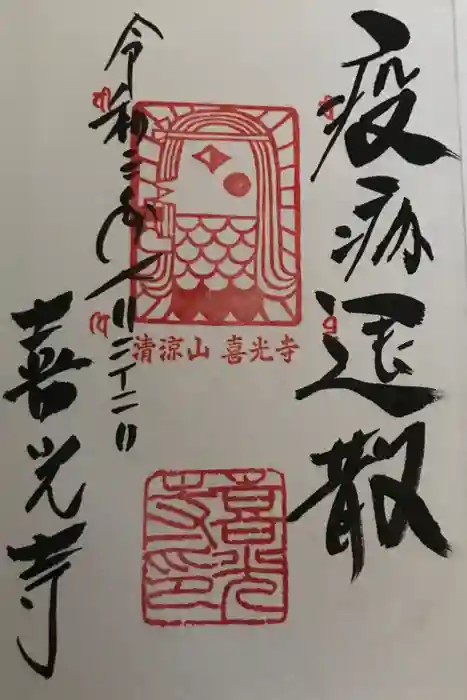 疫病退散
清涼山 喜光寺
喜光
寺印
令和二年七月二十二日
喜光寺